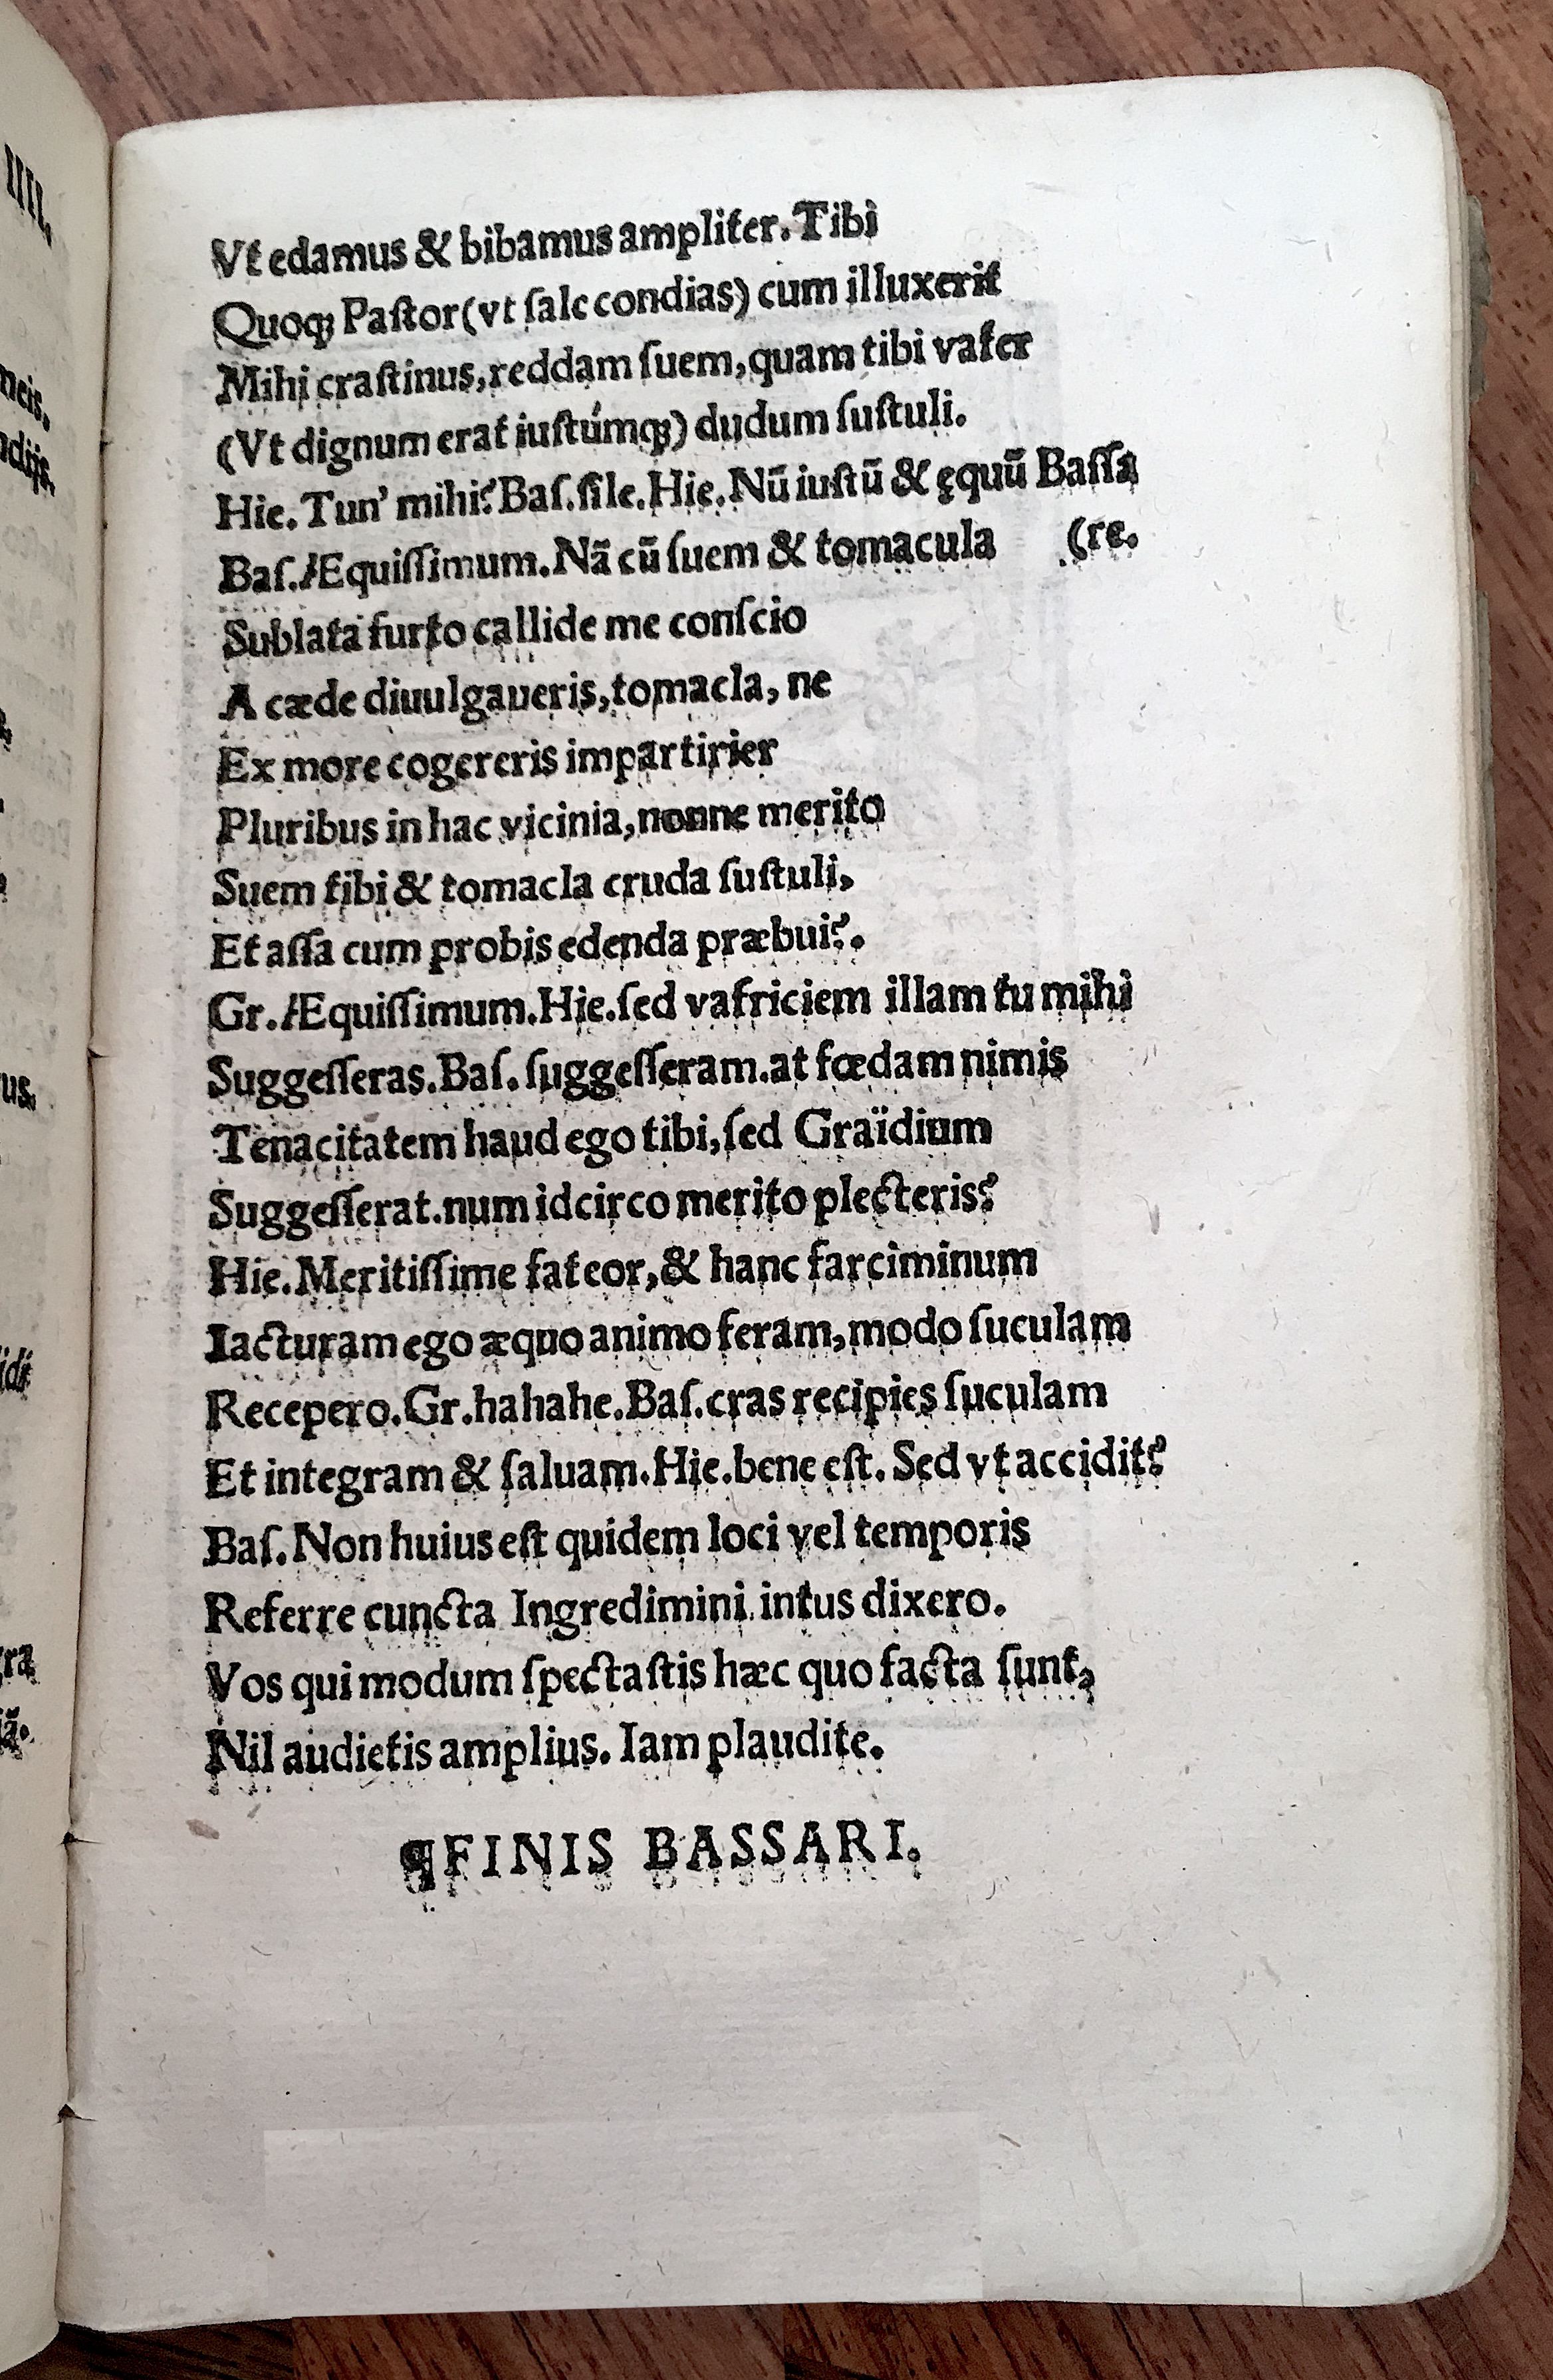 IIII.
Vt edamus & bibamus ampliter. Tibi
Quoqꝫ Paſtor (vt ſale condias) cum illuxerit
Mihi craſtinus, reddam ſuem, quam tibi vafer
(Vt dignum erat iuſtúmqꝫ) dudum ſuſtuli.
Hie. Tun' mihi? Baſ. ſile. Hie. Nũ iuſtũ & ęquũ Baſſa
Baſ. Æquiſſimum. Nã cũ ſuem & tomacula (re.
Sublata furto callide me conſcio
A cæde diuulgaueris, tomacla, ne
Ex more cogereris impartirier
Pluribus in hac vicinia, nonne merito
Suem tibi & tomacla cruda ſuſtuli,
Et aſſa cum probis edenda præbui?.
Gr. Æquiſſimum. Hie. ſed vafriciem illam tu mihi
Suggeſſeras. Baſ. ſuggeſſeram. at fœdam nimis
Tenacitatem haud ego tibi, ſed Graïdium
Suggeſſerat. num idcirco merito plecteris?
Hie. Meritiſſime fateor, & hanc farciminum
Iacturam ego æquo animo feram, modo ſuculam
Recepero. Gr. hahahe. Baſ. cras recipies ſuculam
Et integram & ſaluam. Hie. bene eſt. Sed vt accidit?
Baſ. Non huius eſt quidem loci vel temporis
Referre cuncta Ingredimini, intus dixero.
Vos qui modum ſpectaſtis hæc quo facta ſunt,
Nil audietis amplius. Iam plaudite.
¶FINIS BASSARI.